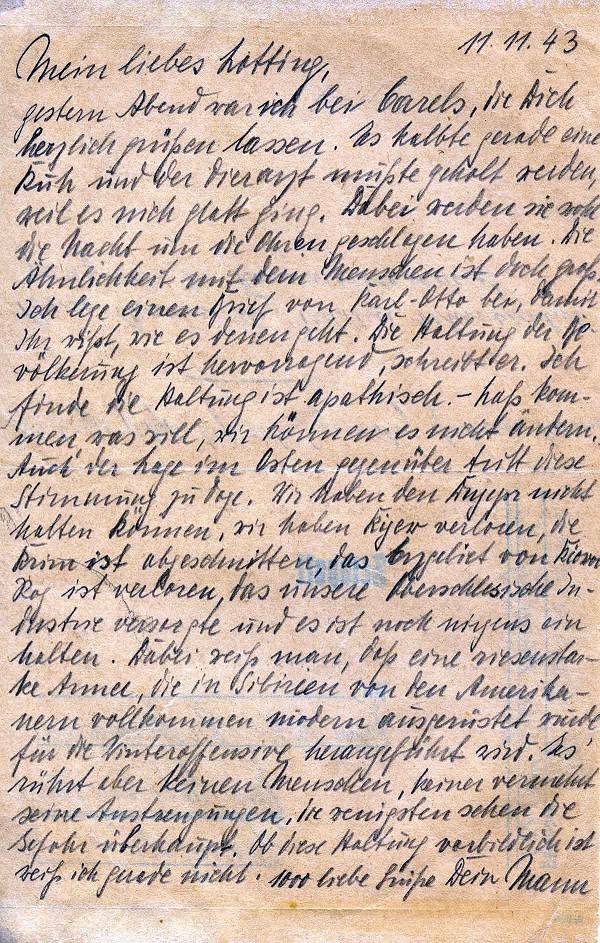 11.11.43
Mein liebes Lotting,
gestern Abend war ich bei Carels, die Dich
herzlich grüßen lassen. Es kalbte gerade eine
Kuh und der Tierarzt mußte geholt werden,
weil es nich glatt ging. Dabei werden sie wohl
die Nacht um die Ohren geschlagen haben. Die
Ähnlichkeit mit dem Menschen ist doch groß.
Ich lege einen Brief von Karl-Otto bei, damit
Ihr wißt, wie es denen geht. Die Haltung der Be-
völkerung ist hervorragend, schreibt er. Ich
finde die Haltung ist apathisch. – Laß kom-
men, was will, wir können es nicht ändern.
Auch der Lage im Osten gegenüber tritt diese
Stimmung zu Tage. Wir haben den Dnjepr nicht
halten können, wir haben Kijew verloren, die
Krim ist abgeschnitten, das Erzgebiet von Kriwoi
Rog ist verloren, das unsere Oberschlesische In-
dustrie versorgte und es ist noch nirgens ein
halten. Dabei weiß man, daß eine riesenstar-
ke Armee, die in Sibirien von den Amerika-
nern vollkommen modern ausgerüstet wurde
für die Winteroffensive herangeführt wird. Es
rührt aber keinen Menschen, keiner vermehrt
seine Anstrengungen, die wenigsten sehen die
Gefahr überhaupt. Ob diese Haltung vorbildlich ist
weiß ich gerade nicht. 1000 liebe Grüße Dein Mann